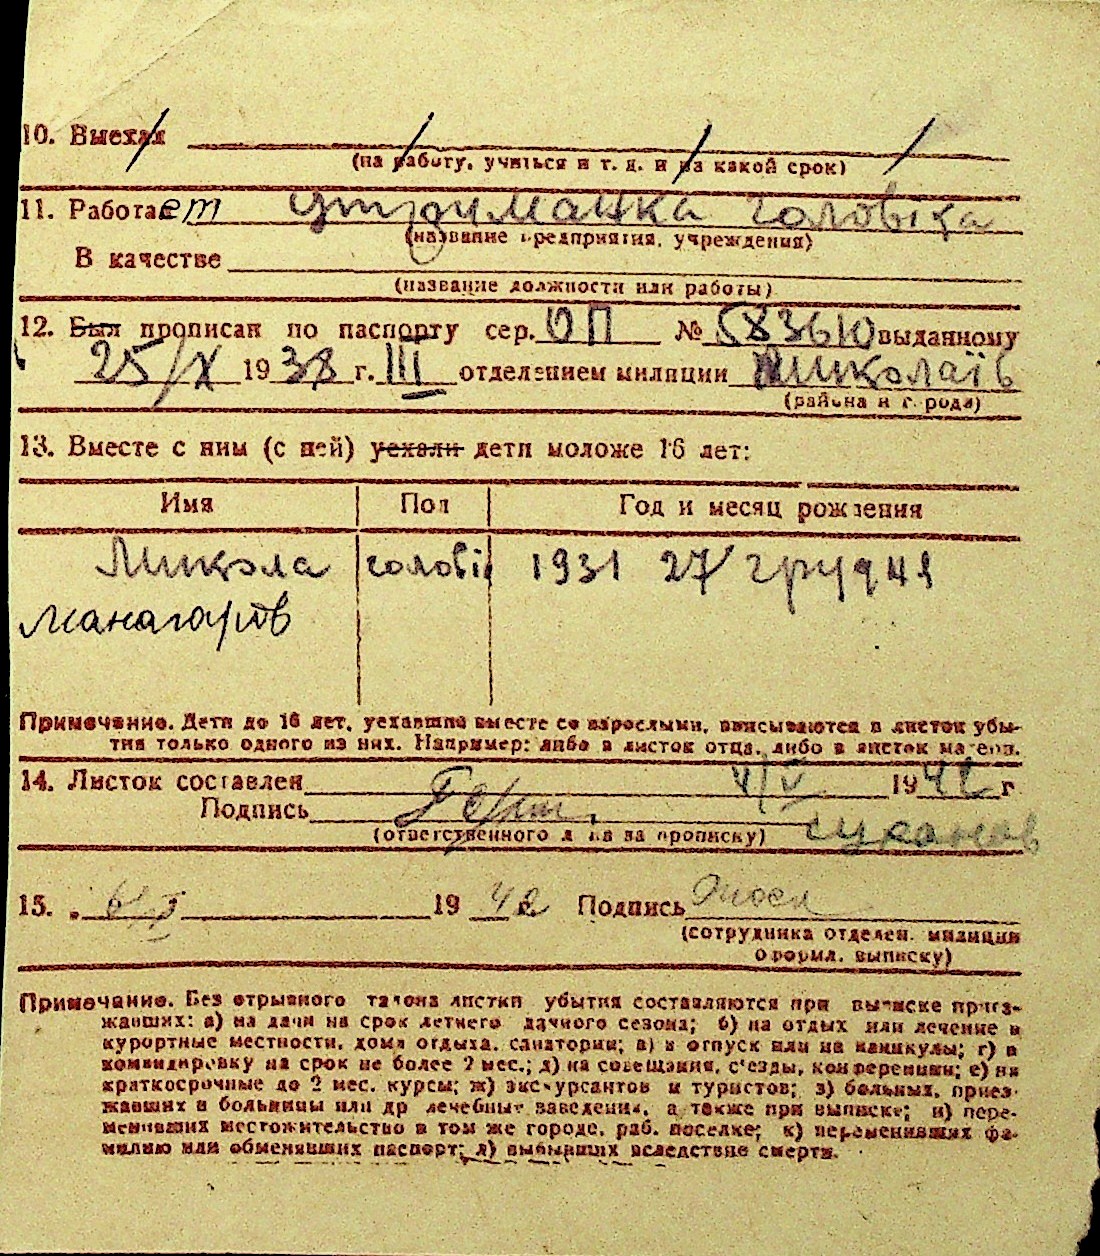 10. Выехал
(на работу, учиться и т. д. и на какой срок)
11. Работает утриманка голов
(название предприятия, учреждения)
В качестве
(название должности или работы)
12. Был прописан по паспорту сер. ОП № выданному
25/X 1938 г. III отделением милиции Миколаїв
(района и города)
13. Вместе с ним (с ней) уехали дети моложе 16 лет:
Имя Пол Год и месяц рождения
Микола голові 1931 27 грудня
Манагаров
Примечание. Дети до 16 лет, уехавшие вместе со взрослыми, вписываются в листок убы-
тия только одного из них. Например: либо в листок отца, либо в листок матери.
14. Листок составлен 4/V 1942 г
Подпись
(ответственного лица за прописку)
15. 1942 Подпись
(сотрудника отделен. милиции
оформл. выписку)
Примечание. Без отрывного талона листки убытия составляются при выписке приез-
жавших: а) на дачи на срок летнего дачного сезона; б) на отдых или лечение в
курортные местности, дома отдыха, санатории; в) в отпуск или на каникулы; г) в
командировку на срок не более 2 мес.; д) на совещания, с'езды, конференции; е) на
краткосрочные до 2 мес. курсы; ж) экскурсантов и туристов; з) больных, приез-
жавших в больницы или др лечебные заведения, а также при выписке; и) пере-
менивших местожительство в том же городе, раб. поселке; к) переменивших фа-
милию или обменявших паспорт; л) выбывших вследствие смерти.